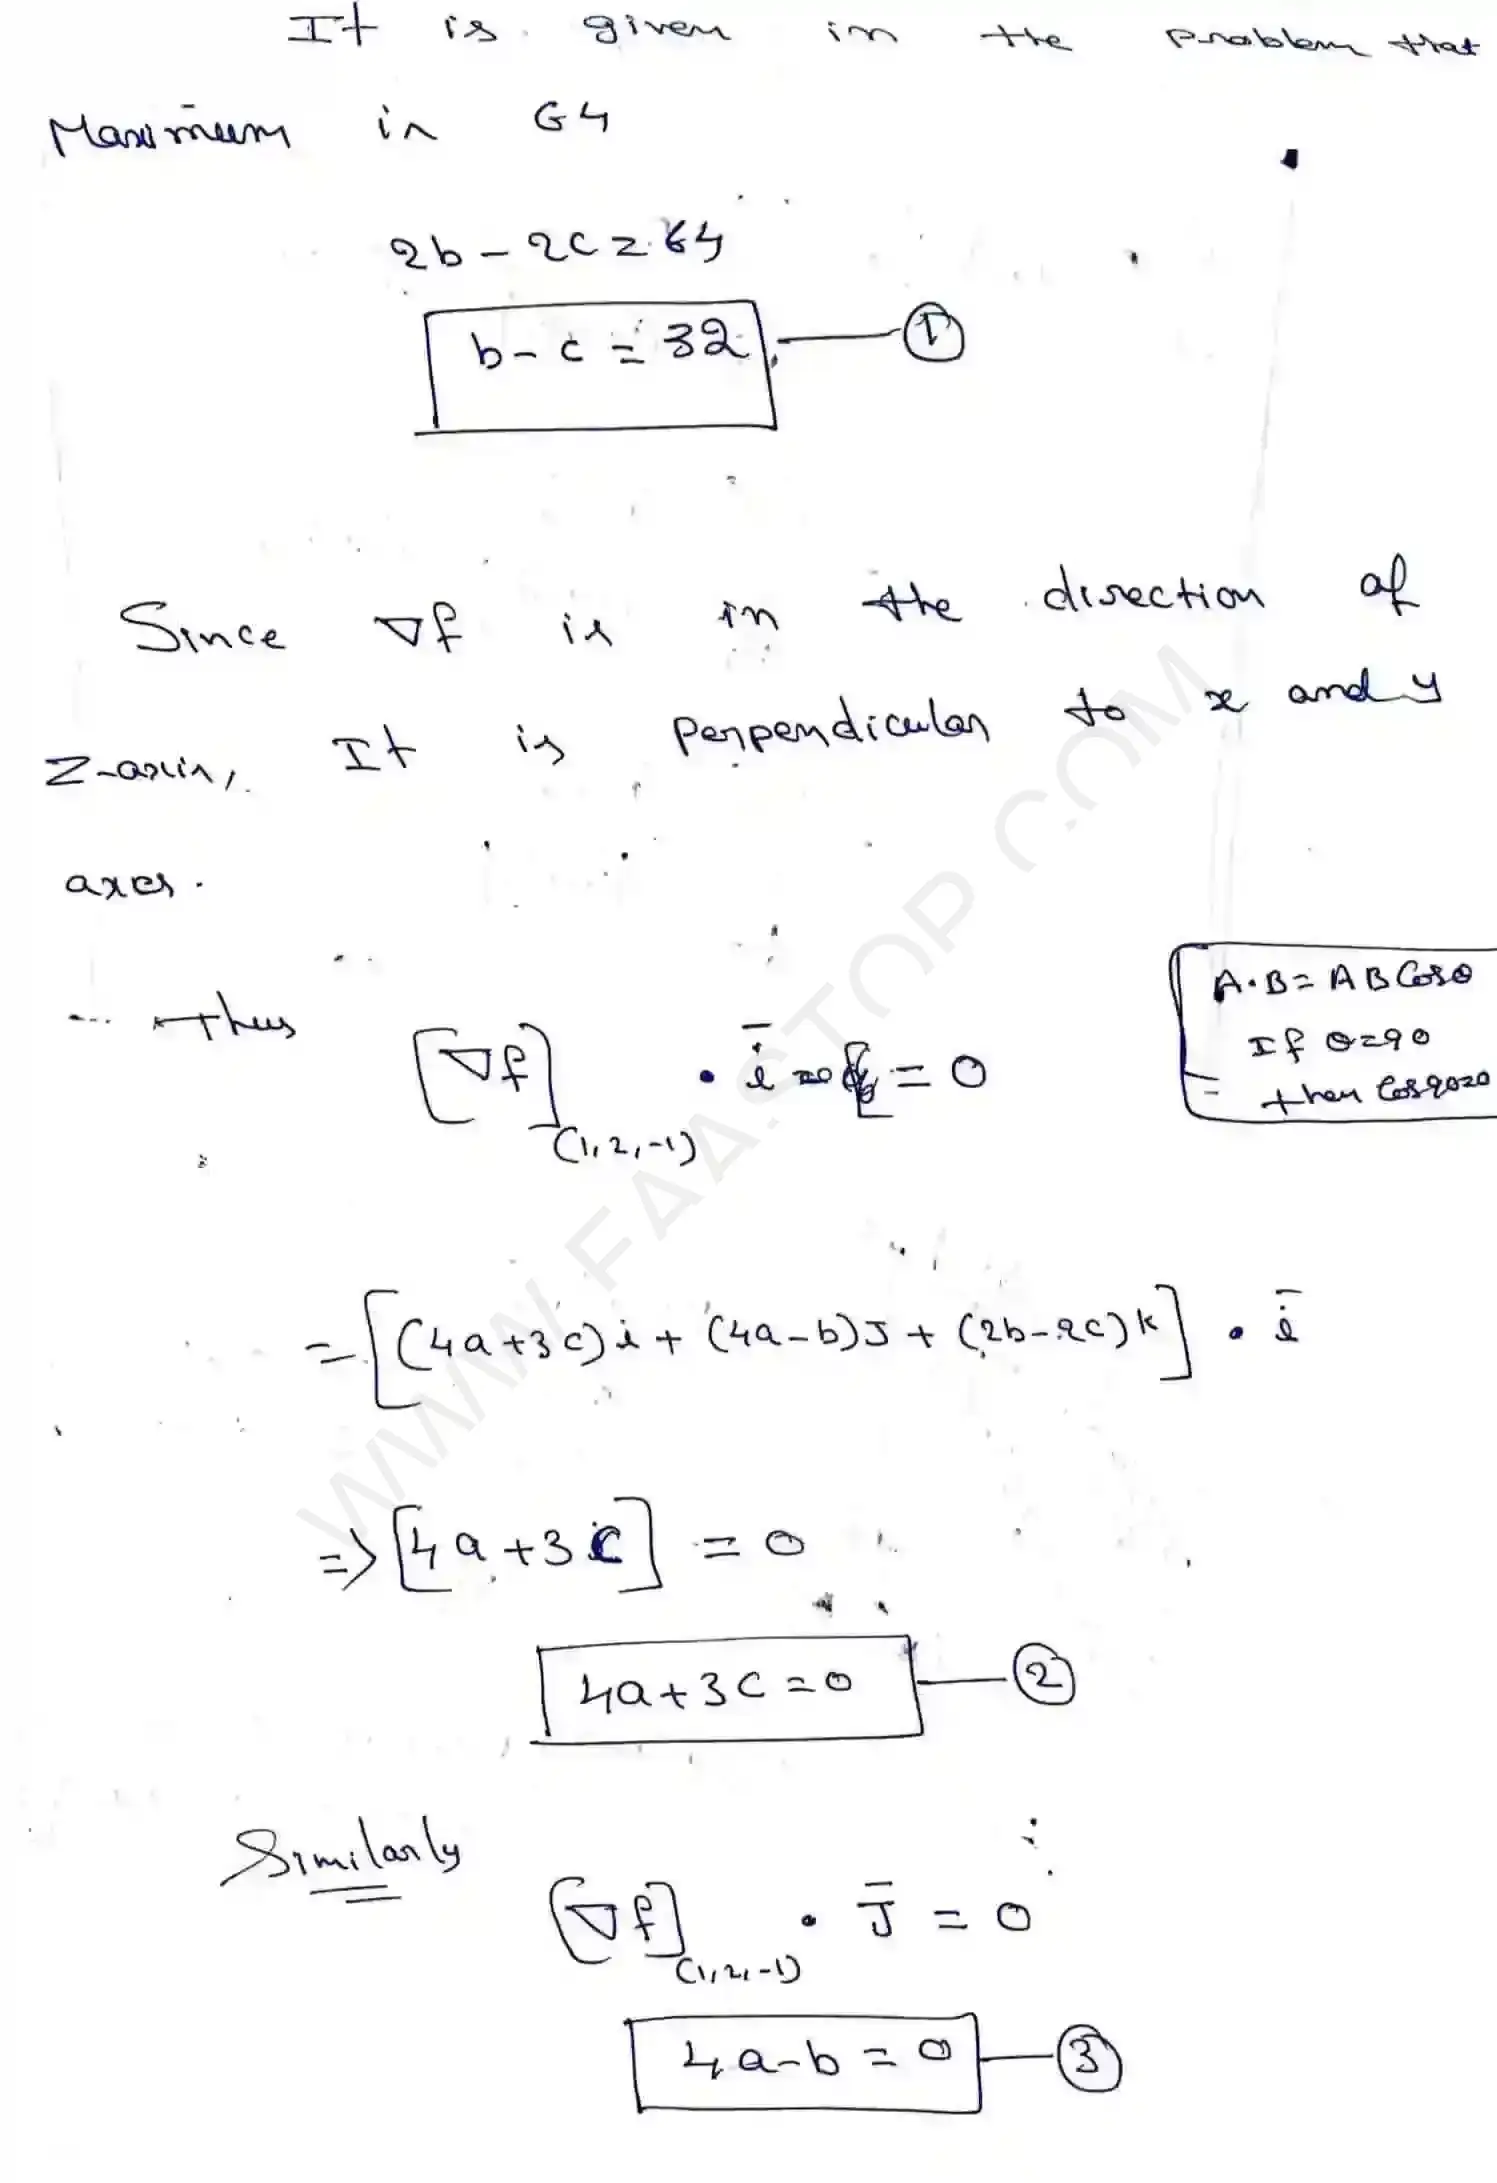 It is given in the problem that
Maximum in 64
2b - 2c = 64
b - c = 32 ①
Since ∇f is in the direction of
z-axis, It is perpendicular to x and y
axes.
A·B = AB Cosθ
If θ=90
then Cos90=0
Thus [∇f](1,2,-1) · i̅ = 0
= [(4a+3c)i + (4a-b)J + (2b-2c)k] · i̅
=> [4a+3c] = 0
4a+3c=0 ②
Similarly
[∇f](1,2,-1) · J̅ = 0
4a-b = 0 ③
WWW.FAASTOP.COM